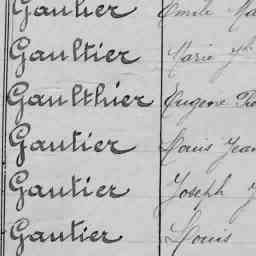 Gaulier Emile Ma
Gaultier Marie
Gaulthier Eugène
Gautier Louis Jean
Gautier Joseph
Gautier Louis